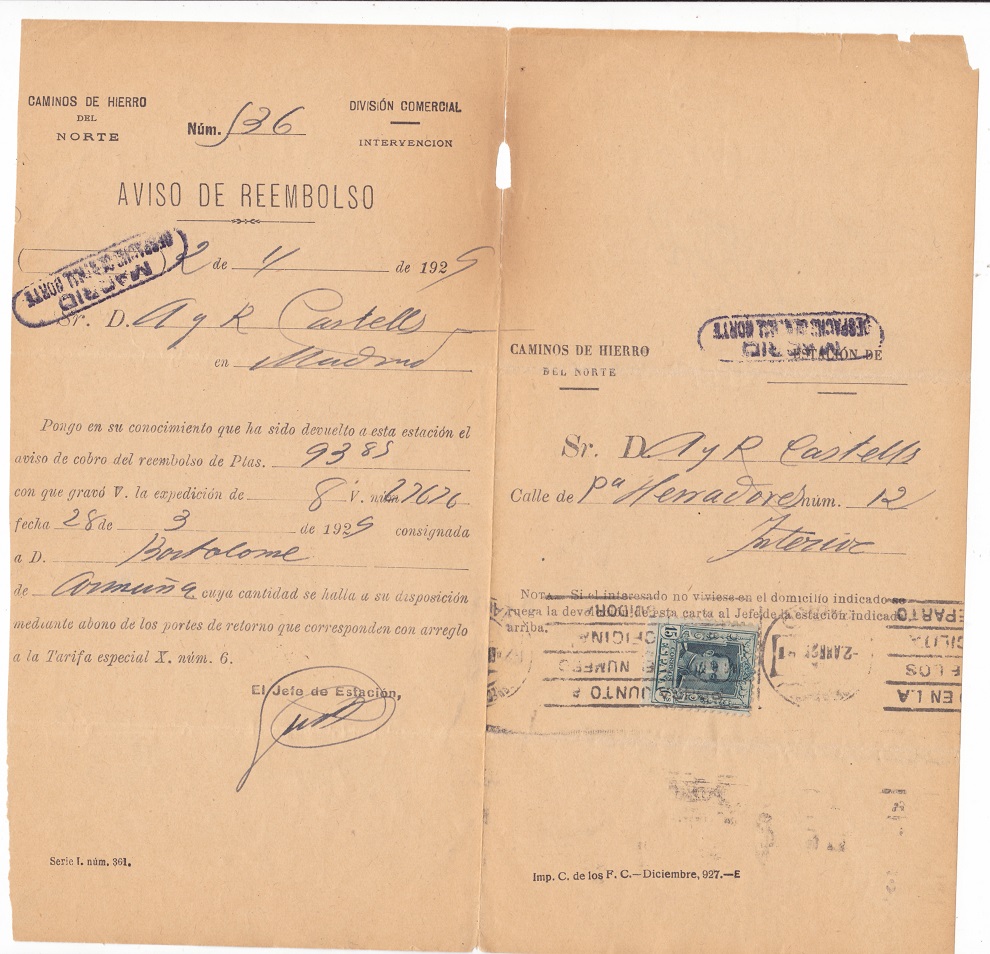 CAMINOS DE HIERRO
DEL
NORTE
Núm. 536
DIVISIÓN COMERCIAL
INTERVENCION
AVISO DE REEMBOLSO
MADRID
DESPACHO CENTRAL NORTE
2 de 4 de 1929
Sr. D. A y R Castells
en Madrid
Pongo en su conocimiento que ha sido devuelto a esta estación el
aviso de cobro del reembolso de Ptas. 93 85
con que gravó V. la expedición de 8 V. núm. 27676
fecha 28 de 3 de 1929 consignada
a D. Bartolome
de cuya cantidad se halla a su disposición
mediante abono de los portes de retorno que corresponden con arreglo
a la Tarifa especial X. núm. 6.
El Jefe de Estación,
Serie I. núm. 361.
CAMINOS DE HIERRO
DEL NORTE
ESTACIÓN DE
MADRID
DESPACHO CENTRAL NORTE
Sr. D. A y R Castells
Calle de Pª Herradores núm. 12
Interior
NOTA. Si el interesado no viviese en el domicilio indicado se
ruega la devolución de esta carta al Jefe de la estación indicada
arriba.
15
EPARTO
CILITA
E LOS
O EN LA
OFICINA
EL NUMERO
JUNTO A
-2 ABR 29
Imp. C. de los F. C.—Diciembre, 927.—E